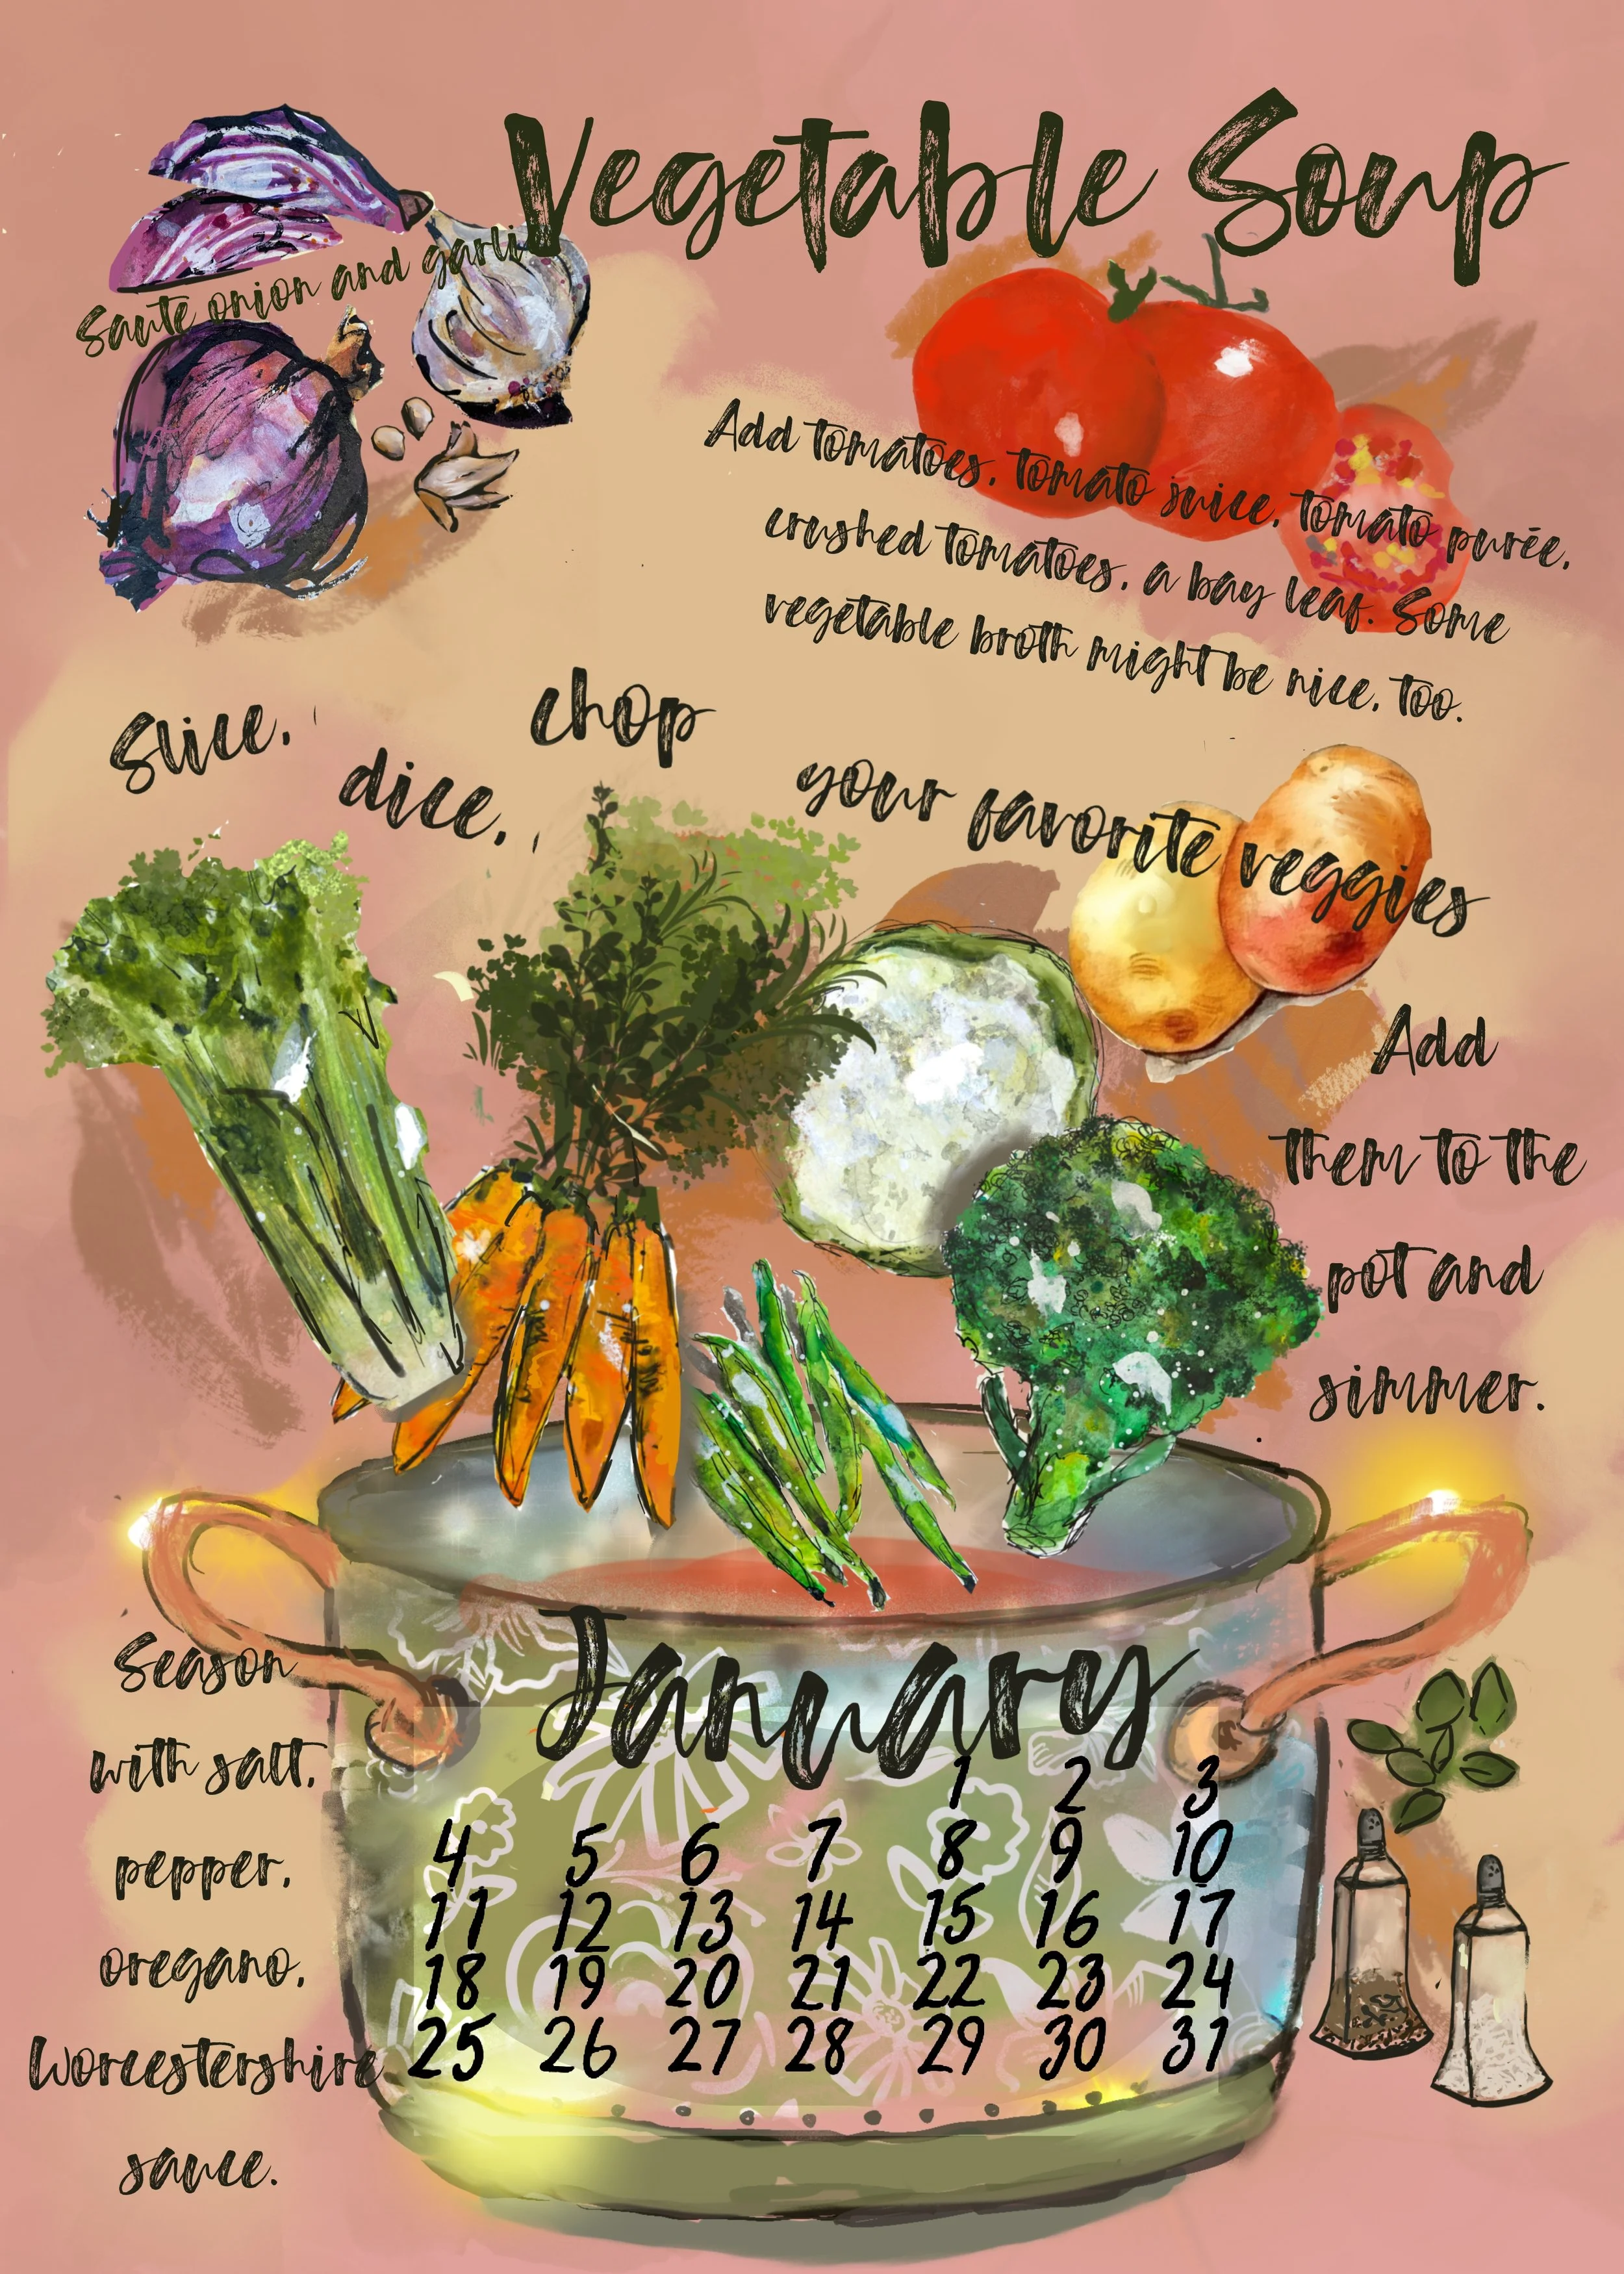 Vegetable Soup
Saute onion and garli
Add tomatoes, tomato juice, tomato purée,
crushed tomatoes, a bay leaf. Some
vegetable broth might be nice, too.
Slice,
dice,
chop
your favorite veggies
Add
them to the
pot and
simmer.
Season
with salt,
pepper,
oregano,
Worcestershire
sauce.
January
1 2 3
4 5 6 7 8 9 10
11 12 13 14 15 16 17
18 19 20 21 22 23 24
25 26 27 28 29 30 31